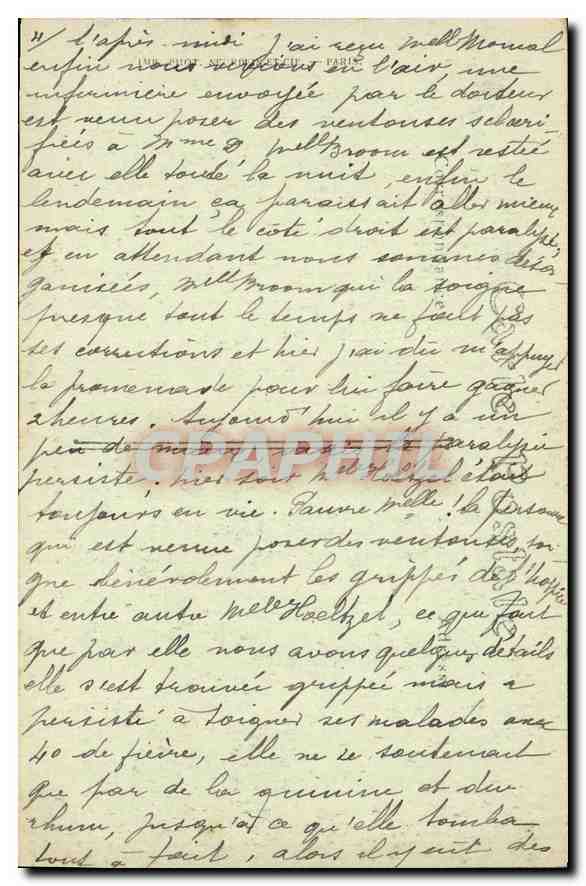 4/ l'après-midi j'ai reçu Melle Momal
IMP. PHOT. NEURDEIN ET CIE. — PARIS.
enfin nous vivions en l'air, une
infirmière envoyée par le docteur
est venue poser des ventouses scari-
fiées à Mme D Melle Broom est restée
avec elle toute la nuit, enfin le
lendemain ça paraissait aller mieux
mais tout le côté droit est paralysé,
et en attendant nous sommes désor-
ganisées, Melle Broom qui la soigne
presque tout le temps ne fait pas
ses corrections et hier j'ai dû m'appuyer
la promenade pour lui faire gagner
2 heures. Aujourd'hui il y a un
peu de mieux mais la paralysie
persiste. hier soir Melle Hoeltzel était
toujours en vie. Pauvre Melle! la personne
qui est venue poser des ventouses, soi-
gne bénévolement les grippés de l'hospice
et entre autre Melle Hoeltzel, ce qui fait
que par elle nous avons quelques détails
elle s'est trouvée grippée mais a
persisté à soigner ses malades avec
40 de fièvre, elle ne se soutenait
que par de la quinine et du
rhum, jusqu'à ce qu'elle tomba
tout à fait, alors il y eut des
CPARAMA